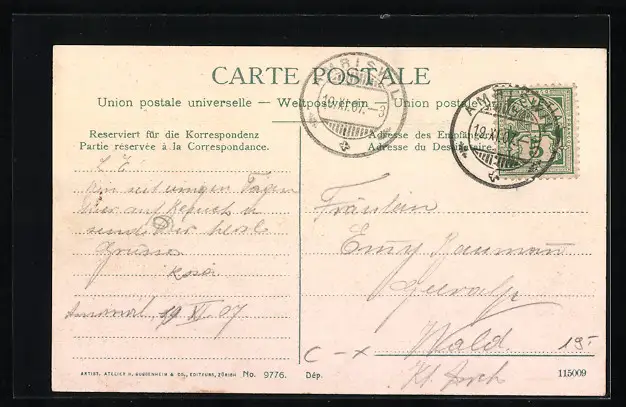 CARTE POSTALE
Union postale universelle — Weltpostverein — Union postale
Reserviert für die Korrespondenz
Partie réservée à la Correspondance.
Adresse des Empfängers
Adresse du Destinataire
AMRISWIL
19.XI.07.
AMRISWIL
19.XI.07.
5
L. E.
Bin seit einigen Tagen
hier auf Besuch u
sende Dir herzl.
Grüsse
Rosa
19 XI 07
Fräulein
Emy
Wald.
Kt. Zürich
C — x
19.-
ARTIST. ATELIER H. GUGGENHEIM & CO., EDITEURS, ZÜRICH No. 9776.
Dép.
115009